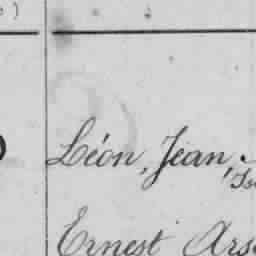 Léon, Jean,
Ernest Ars